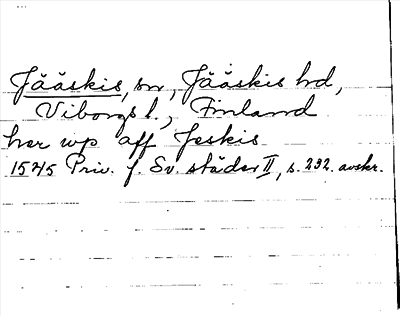 Jääskis, sn, Jääskis hd,
Viborgs l., Finland
her wp aff Jeskis
1545 Priv. f. Sv. städer II, s. 232. avskr.